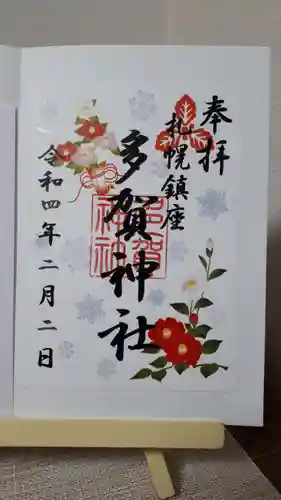 奉拝
札幌鎮座
多賀神社
多賀神社
令和四年二月二日